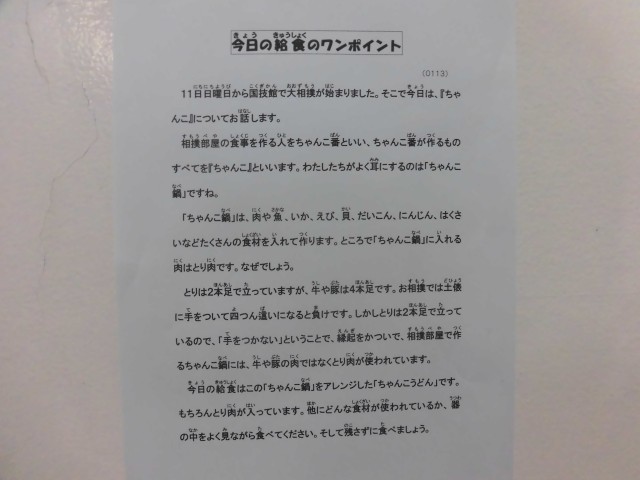 今日の給食のワンポイント
(0113)
11日日曜日から国技館で大相撲が始まりました。そこで今日は、『ちゃ
んこ』についてお話します。
相撲部屋の食事を作る人をちゃんこ番といい、ちゃんこ番が作るもの
すべてを『ちゃんこ』といいます。わたしたちがよく耳にするのは「ちゃんこ
鍋」ですね。
「ちゃんこ鍋」は、肉や魚、いか、えび、貝、だいこん、にんじん、はくさ
いなどたくさんの食材を入れて作ります。ところで「ちゃんこ鍋」に入れる
肉はとり肉です。なぜでしょう。
とりは2本足で立っていますが、牛や豚は4本足です。お相撲では土俵
に手をついて四つん這いになると負けです。しかしとりは2本足で立って
いるので、「手をつかない」ということで、縁起をかついで、相撲部屋で作
るちゃんこ鍋には、牛や豚の肉ではなくとり肉が使われています。
今日の給食はこの「ちゃんこ鍋」をアレンジした「ちゃんこうどん」です。
もちろんとり肉が入っています。他にどんな食材が使われているか、器
の中をよく見ながら食べてください。そして残さずに食べましょう。